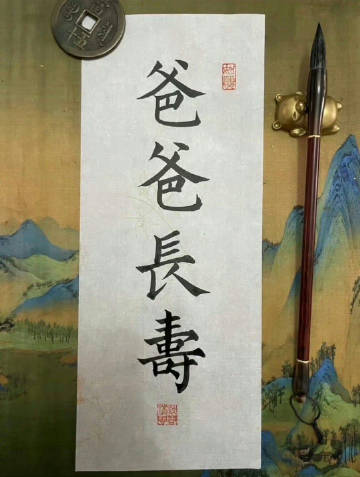 爸爸長壽